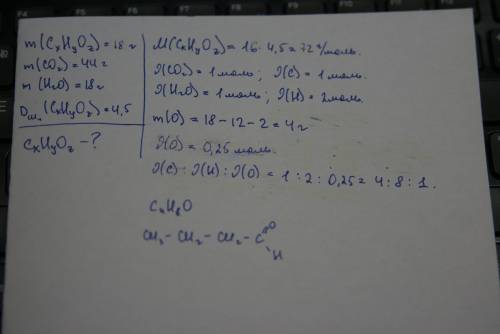 m(CxHyOz)=18 г
m(CO₂)=44 г
m(H₂O)=18 г
D_CH₄(CxHyOz)=4,5
CxHyOz - ?
M(CxHyOz)=16·4,5=72 г/моль.
ν(CO₂)=1 моль; ν(C)=1 моль.
ν(H₂O)=1 моль; ν(H)=2 моль.
m(O)=18-12-2=4 г
ν(O)=0,25 моль.
ν(C):ν(H):ν(O)=1:2:0,25=4:8:1.
C₄H₈O
CH₃-CH₂-CH₂-C=O
H